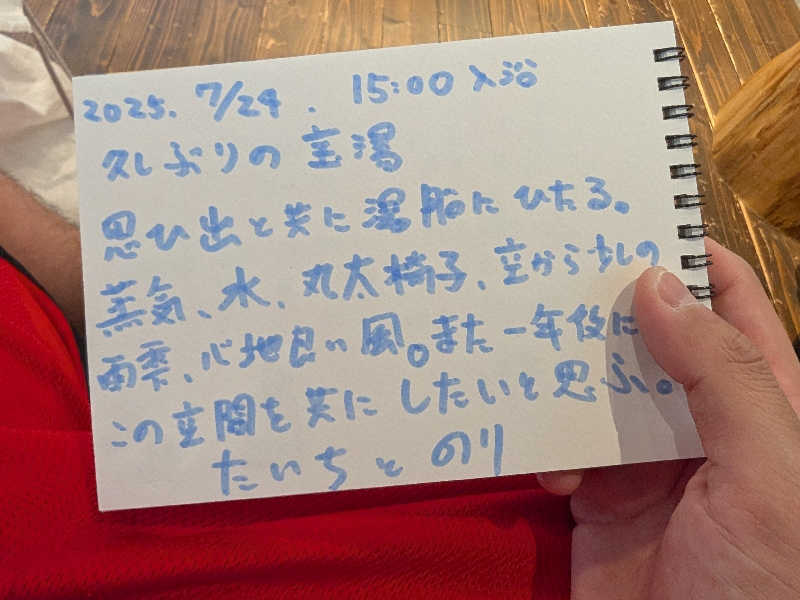 2025. 7/29. 15:00 入浴
久しぶりの宝湯
思ひ出と共に湯船にひたる。
蒸気、水、丸太椅子、空から少しの
雨雫、心地良い風。また一年後に
この空間を共にしたいと思ふ。
たいちとのり